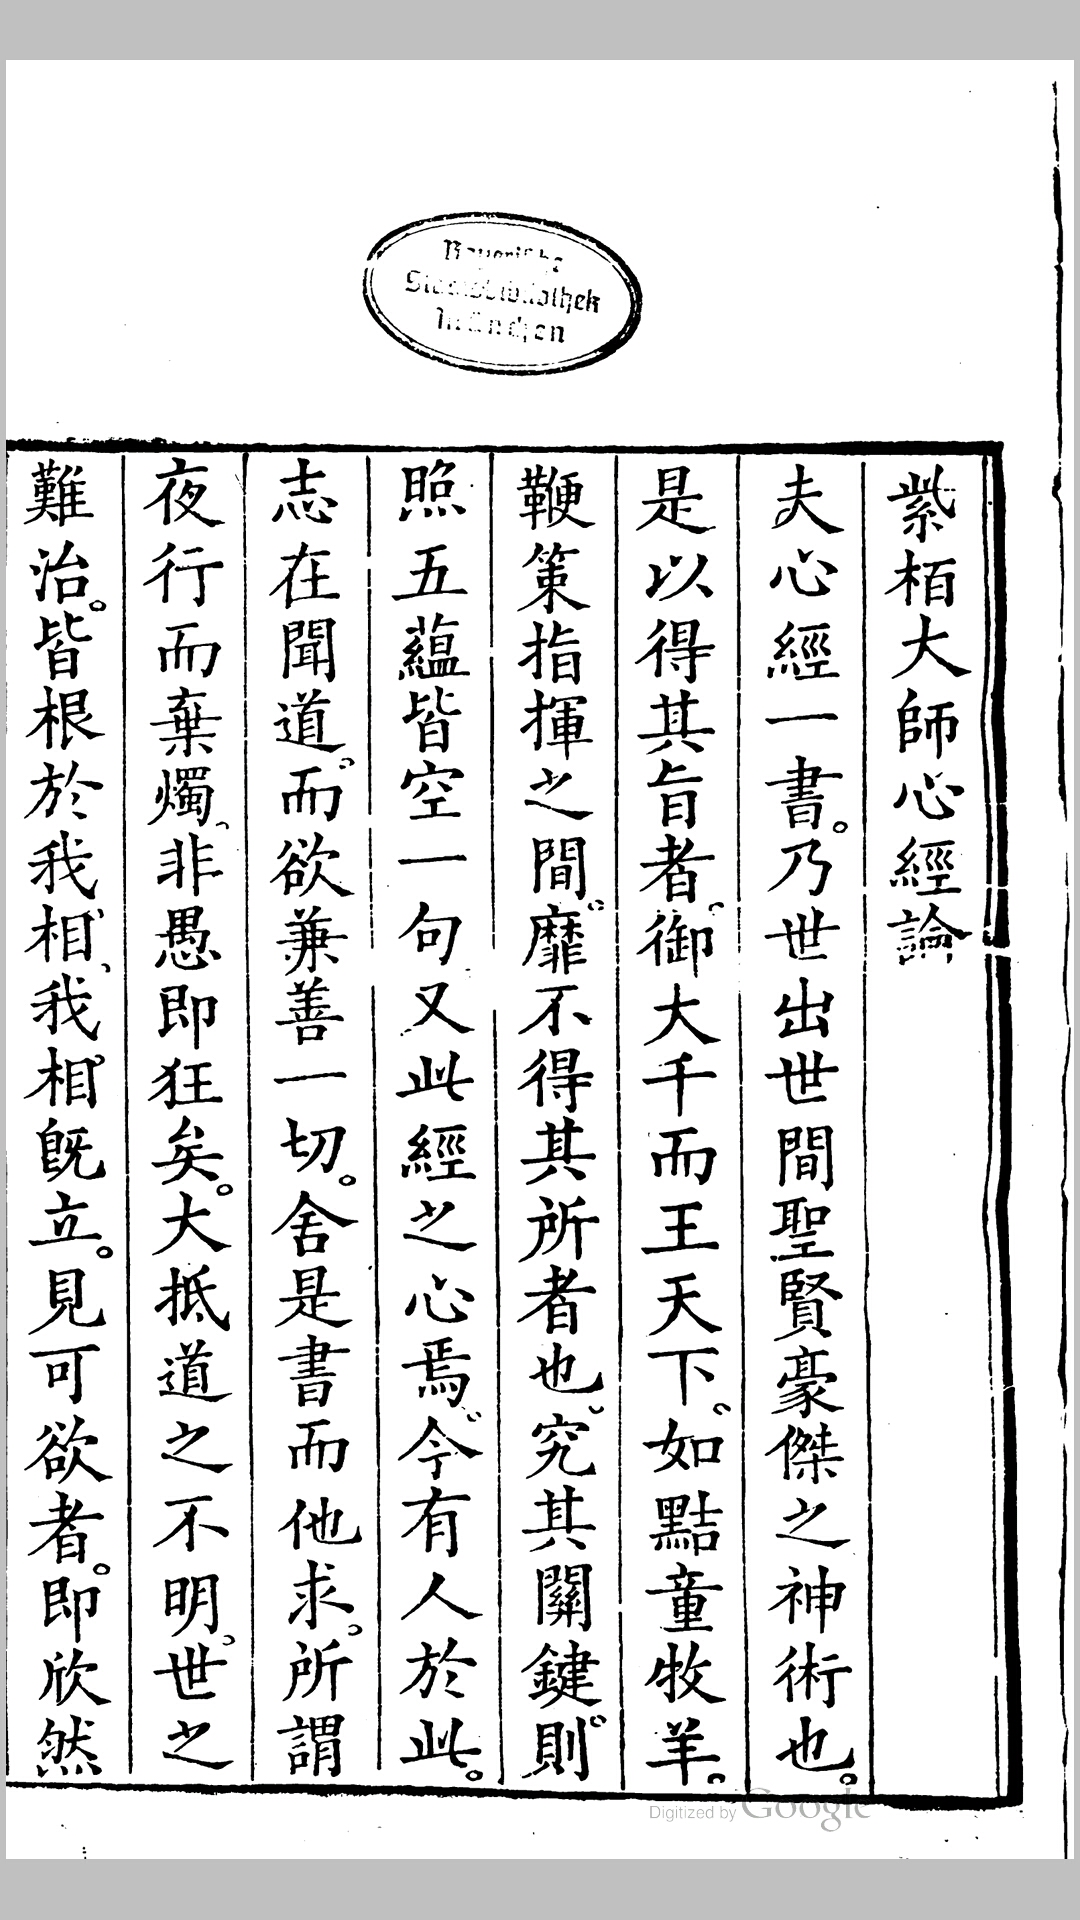 Bayerische
Staatsbibliothek
München
紫栢大師心經論
夫心經一書。乃世出世間聖賢豪傑之神術也。
是以得其旨者御大千而王天下。如點童牧羊。
鞭策指揮之間靡不得其所者也究其關鍵則
照五蘊皆空一句又此經之心焉今有人於此。
志在聞道。而欲兼善一切。舍是書而他求。所謂
夜行而棄燭、非愚即狂矣。大抵道之不明。世之
難治。皆根於我相、我相既立。見可欲者。即欣然
Digitized by Google